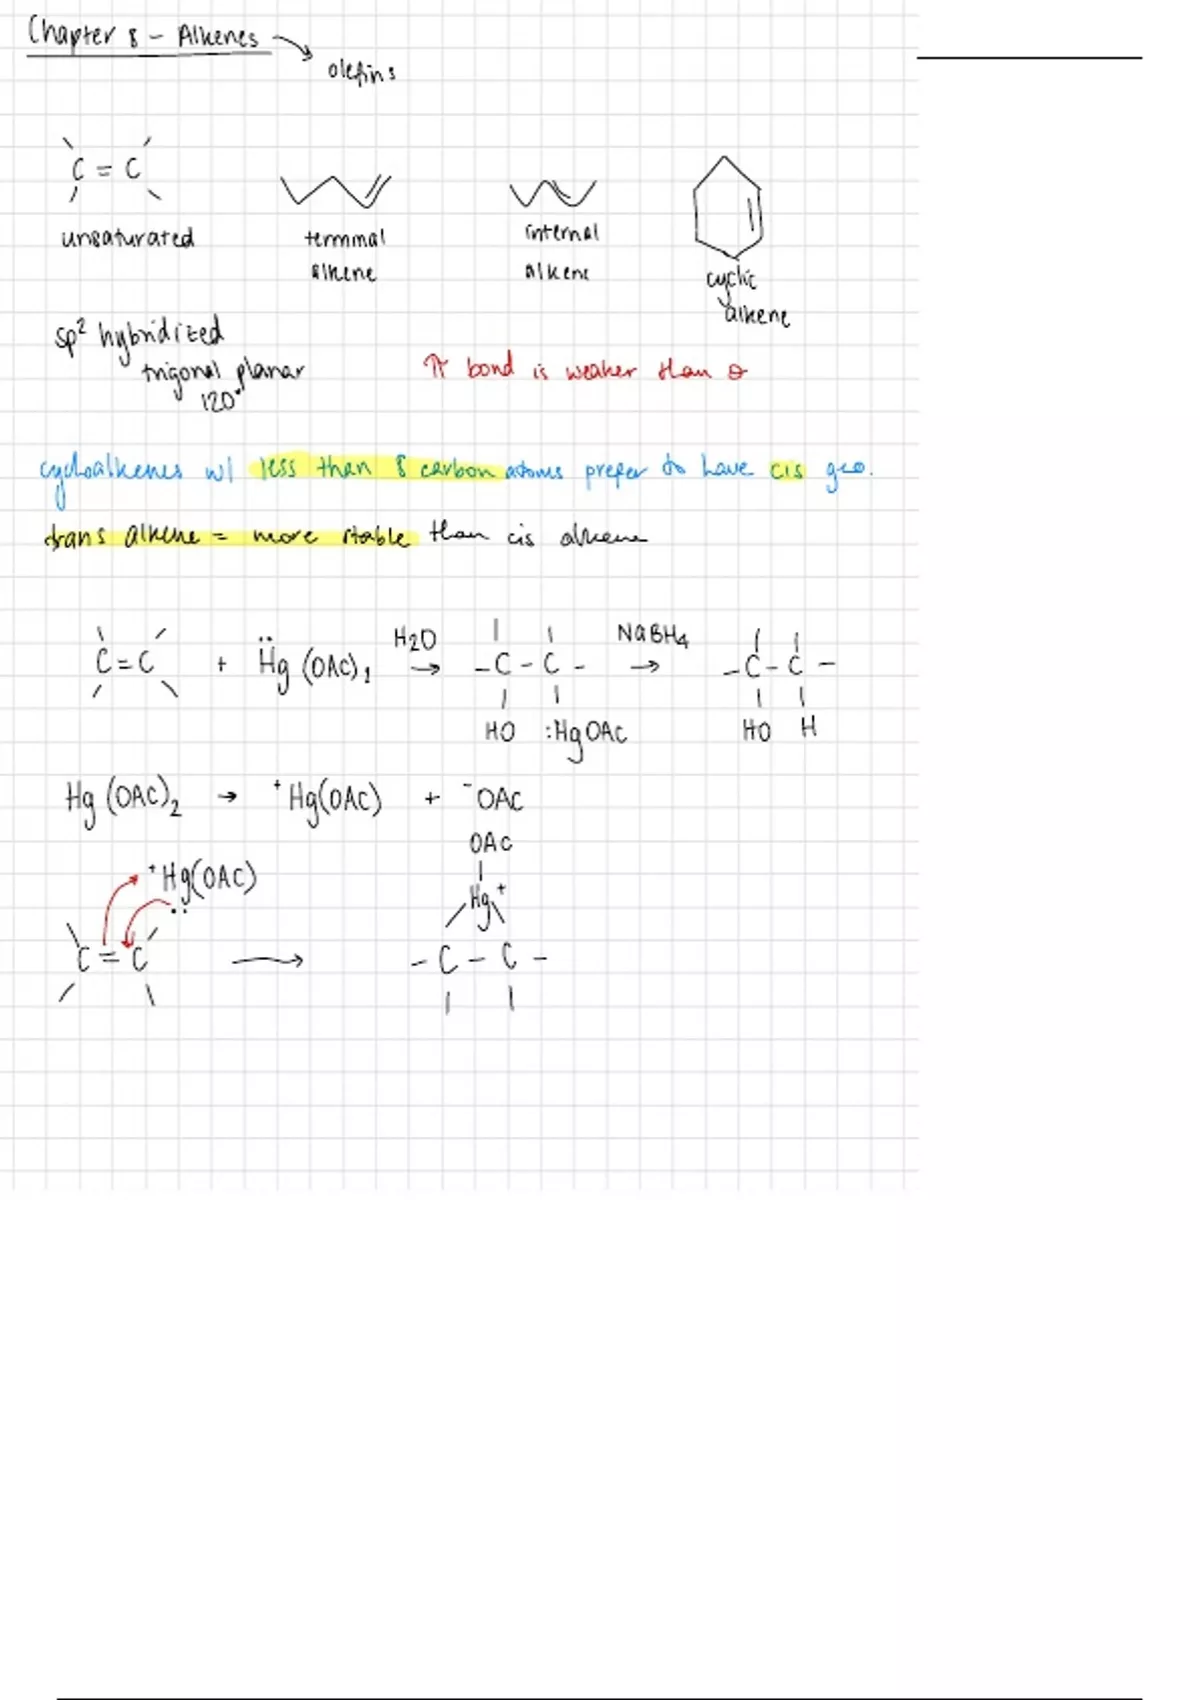 Chapter 8 - Alkenes →
olefins
C = C
unsaturated
terminal
alkene
internal
alkene
cyclic
alkene
sp² hybridized
trigonal planar
120°
π bond is weaker than σ
cycloalkenes w/ less than 8 carbon atoms prefer to have cis geo.
trans alkene = more stable than cis alkene
C = C + Hg (OAc)₂ H2O → - C - C - NaBH4 → - C - C -
HO :HgOAc HO H
Hg (OAc)₂ → ⁺Hg(OAc) + ⁻OAc
OAc
⁺Hg(OAc)
Hg⁺
C = C → - C - C -